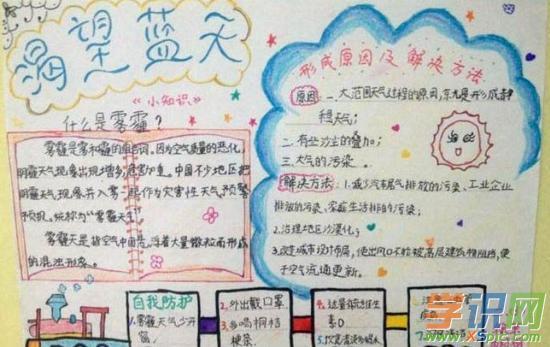 渴望蓝天
《小知识》
什么是雾霾？
雾霾是雾和霾的组合词，因为空气质量的恶化，
阴霾天气现象出现增多，危害加重。中国不少地区把
阴霾天气现象并入雾一起作为灾害性天气预警
预报。统称为“雾霾天气”
雾霾天是指空气中
浮着大量微粒而形成
的混浊形象。
形成原因及解决方法
原因：一、大范围天气过程的原因，
稳天气；
二、有些沙土的叠加；
三、大气的污染。
解决方法：1.减少汽车尾气排放的污染，工业企业
排放的污染，家庭生活排的污染；
2.治理地区沙漠化；
3.改变城市设计布局，使出风口不能被高层建筑物阻挡，便
于空气流通更新。
自我防护
1.雾霾天气少开
窗，
2.外出戴口罩
3.多喝桐桔
梗茶
4.适量补充维生
素D
学识网
www.xspic.com